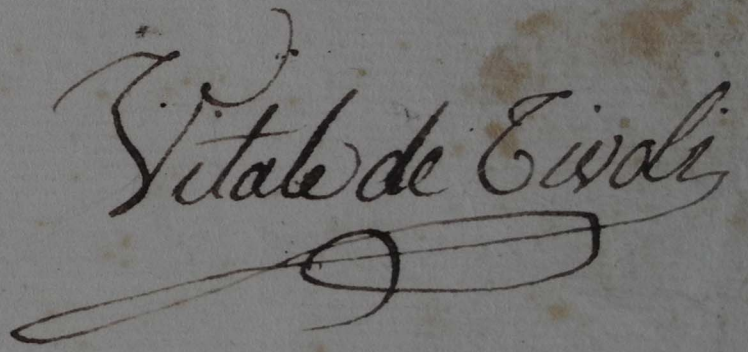 Vitale de Tivoli